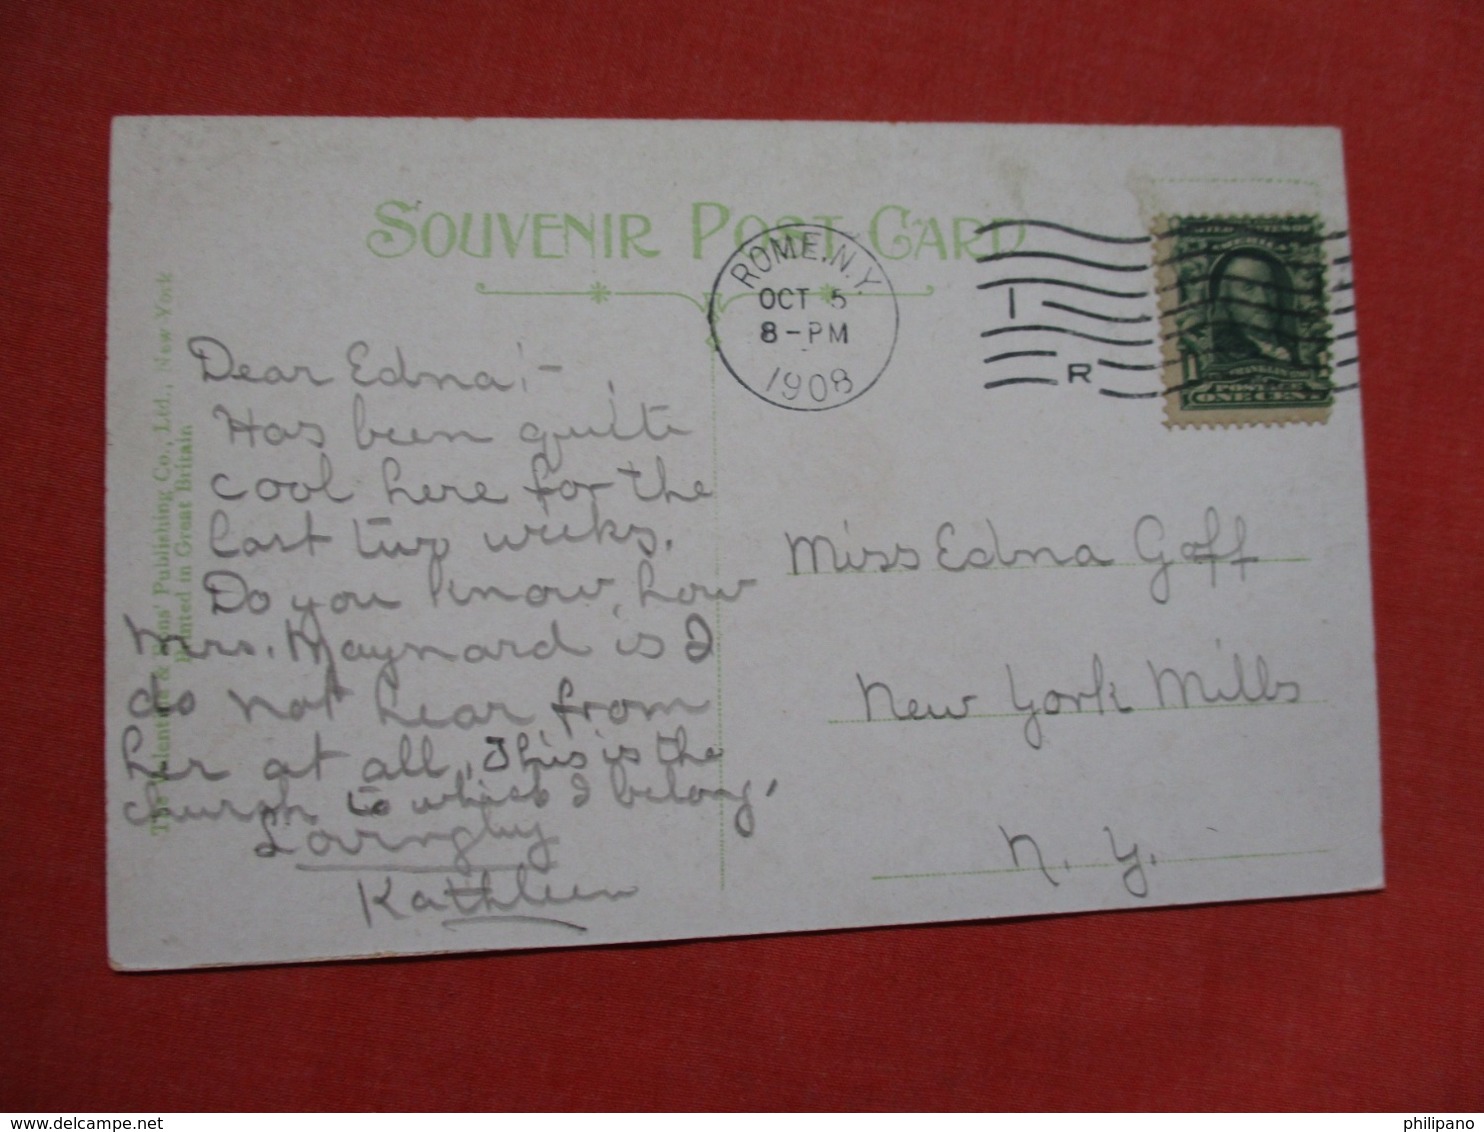 SOUVENIR POST CARD
ROME, N.Y.
OCT 5
8-PM
1908
I
R
FRANKLIN
POSTAGE
ONE CENT
The Valentine & Sons' Publishing Co., Ltd., New York
Printed in Great Britain
Dear Edna:-
Has been quite
cool here for the
last two weeks.
Do you know, how
Mrs. Maynard is I
do not hear from
her at all. This is the
church to which I belong.
Lovingly
Kathleen
Miss Edna Goff
New York Mills
N. Y.
http://www.delcampe.net
philipano